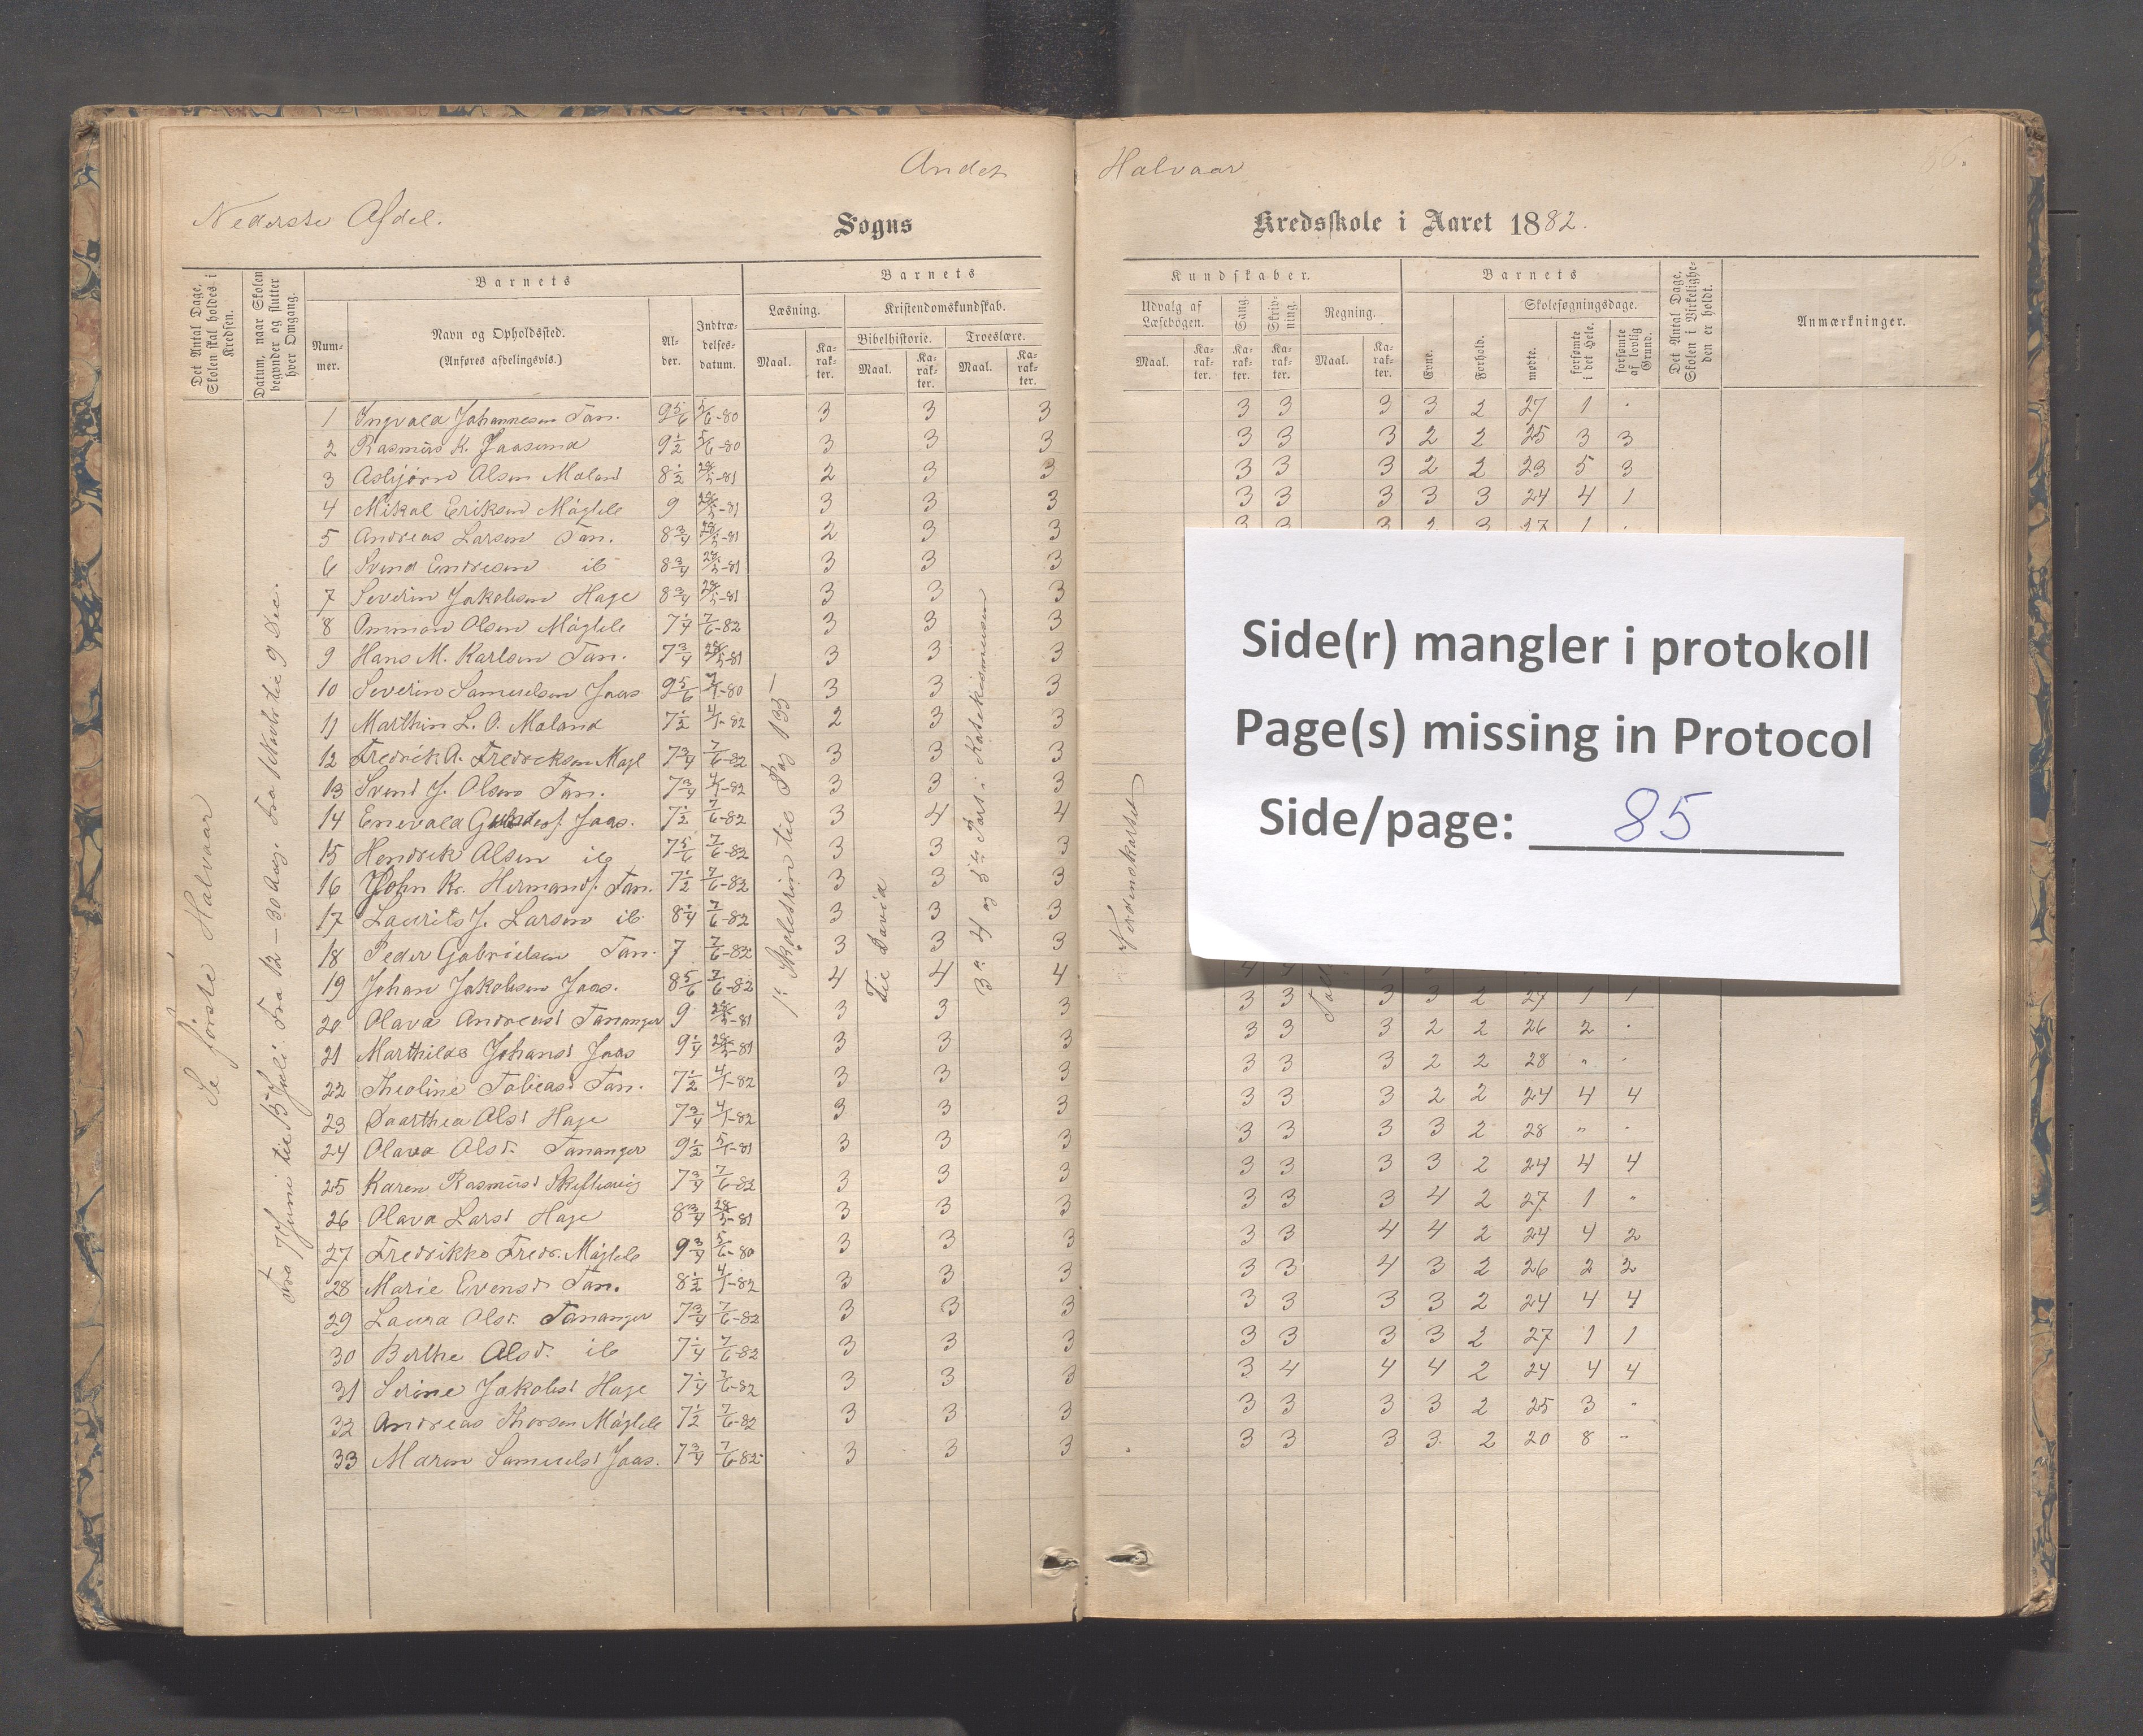 Andet Halvaar
Nederste Afdel.
Sogns Kredsskole i Aaret 1882.
Det Antal Dage, Skolen skal holdes i Kredsen.
Datum, naar Skolen begynder og slutter hver Omgang.
Barnets
Nummer.
Navn og Opholdssted.
(Anføres afdelingsvis.)
Alder.
Indtrædelsesdatum.
Barnets Kundskaber.
Læsning.
Maal. Karakter.
Kristendomskundskab.
Bibelhistorie. Troeslære.
Maal. Karakter. Maal. Karakter.
Udvalg af Læsebogen.
Maal. Karakter.
Sang. Karakter.
Skrivning. Karakter.
Regning.
Maal. Karakter.
Barnets
Evne.
Forhold.
Skolesøgningsdage.
mødte.
forsømte i det Hele.
forsømte af lovlig Grund.
Det Antal Dage, Skolen i Virkeligheden er holdt.
Anmærkninger.
Se første Halvaar
1 Ingvald Johannesen Tan. 9 5/6 5/6-80 3 3 3 3 3 3 3 2 27 1 .
2 Rasmus K. Jaasund 9 1/2 5/6-80 3 3 3 3 3 3 2 2 25 3 3
3 Asbjørn Olsen Moland 8 1/2 28/5-81 2 3 3 3 3 3 2 2 23 5 3
4 Mikal Eriksen Mågleb 9 28/5-81 3 3 3 3 3 3 3 3 24 4 1
5 Andreas Larsen Tan. 8 3/4 28/5-81 2 3 3
6 Svend Endresen ib 8 3/4 28/5-81 3 3 3
7 Severin Jakobsen Hage 8 3/4 28/5-81 3 3 3
8 Ommon Olsen Mågleb 7 1/4 7/6-82 3 3 3
9 Hans M. Karlsen Tan. 7 3/4 28/5-81 3 3 3
10 Severin Samuelsen Jaas 9 5/6 7/1-80 3 3 3
11 Marthin L. O. Moland 7 1/2 4/1-82 2 3 3
12 Fredrik A. Fredreksen Magl 7 3/4 7/6-82 3 3 3
13 Svend J. Olsen Tan. 7 3/4 4/1-82 3 3 3
14 Enevald Jaas. 7 1/2 7/6-82 3 4 4
15 Hendrik Olsen ib 7 5/6 7/6-82 3 3 3
16 John Kr. Hermands. Tan. 7 1/2 7/6-82 3 3 3
17 Laurits J. Larsen ib 8 1/4 7/6-82 3 3 3
18 Peder Gabrielsen Tan. 7 7/6-82 3 3 3
19 Johan Jakobsen Jaas. 8 5/6 7/6-82 4 4 4
20 Olava Andreasd Tananger 9 28/5-81 3 3 3 3 3 3 3 2 27 1 1
21 Marthilde Johansd Jaas 9 1/4 28/5-81 3 3 3 3 3 3 2 2 26 2 .
22 Theoline Tobiasd Tan. 7 1/2 4/1-82 3 3 3 3 3 3 2 2 28 " .
23 Daarthea Olsd Hage 7 3/4 4/1-82 3 3 3 3 3 3 2 2 24 4 4
24 Olava Olsd. Tananger 9 1/2 5/1-81 3 3 3 3 3 3 3 2 28 " .
25 Karen Rasmusd 7 3/4 7/6-82 3 3 3 3 3 3 3 2 24 4 4
26 Olava Larsd Hage 8 3/4 28/5-81 3 3 3 3 3 3 4 2 27 1 "
27 Fredrikke Fredr. Mågleb 9 3/4 5/6-80 3 3 3 3 3 4 4 2 24 4 2
28 Marie Evensd Tan. 8 1/2 4/1-82 3 3 3 3 3 4 3 2 26 2 2
29 Laura Olsd. Tananger 7 3/4 7/6-82 3 3 3 3 3 3 3 2 24 4 4
30 Berthe Olsd. ib 7 1/4 7/6-82 3 3 3 3 3 3 3 2 27 1 1
31 Serine Jakobsd Hage 7 1/4 7/6-82 3 3 3 3 4 4 4 2 24 4 4
32 Andreas Thorsen Mågleb 7 1/2 7/6-82 3 3 3 3 3 3 3 2 25 3 "
33 Maren Samuelsd Jaas. 7 3/4 7/6-82 3 3 3 3 3 3 3 2 20 8 "
1e Skoletrin til Pag 133
Til David
3die 4 og 5te Part i Katekismusen
Side(r) mangler i protokoll
Page(s) missing in Protocol
Side/page: 85